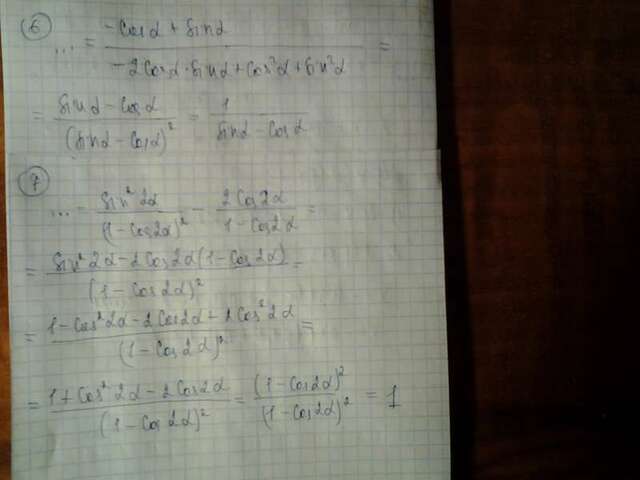 6
... = (-Cosα + Sinα) / (-2Cosα · Sinα + Cos²α + Sin²α) =
= (Sinα - Cosα) / (Sinα - Cosα)² = 1 / (Sinα - Cosα)
7
... = Sin²2α / (1 - Cos2α)² - 2Cos2α / (1 - Cos2α) =
= (Sin²2α - 2Cos2α(1 - Cos2α)) / (1 - Cos2α)² =
= (1 - Cos²2α - 2Cos2α + 2Cos²2α) / (1 - Cos2α)² =
= (1 + Cos²2α - 2Cos2α) / (1 - Cos2α)² = (1 - Cos2α)² / (1 - Cos2α)² = 1